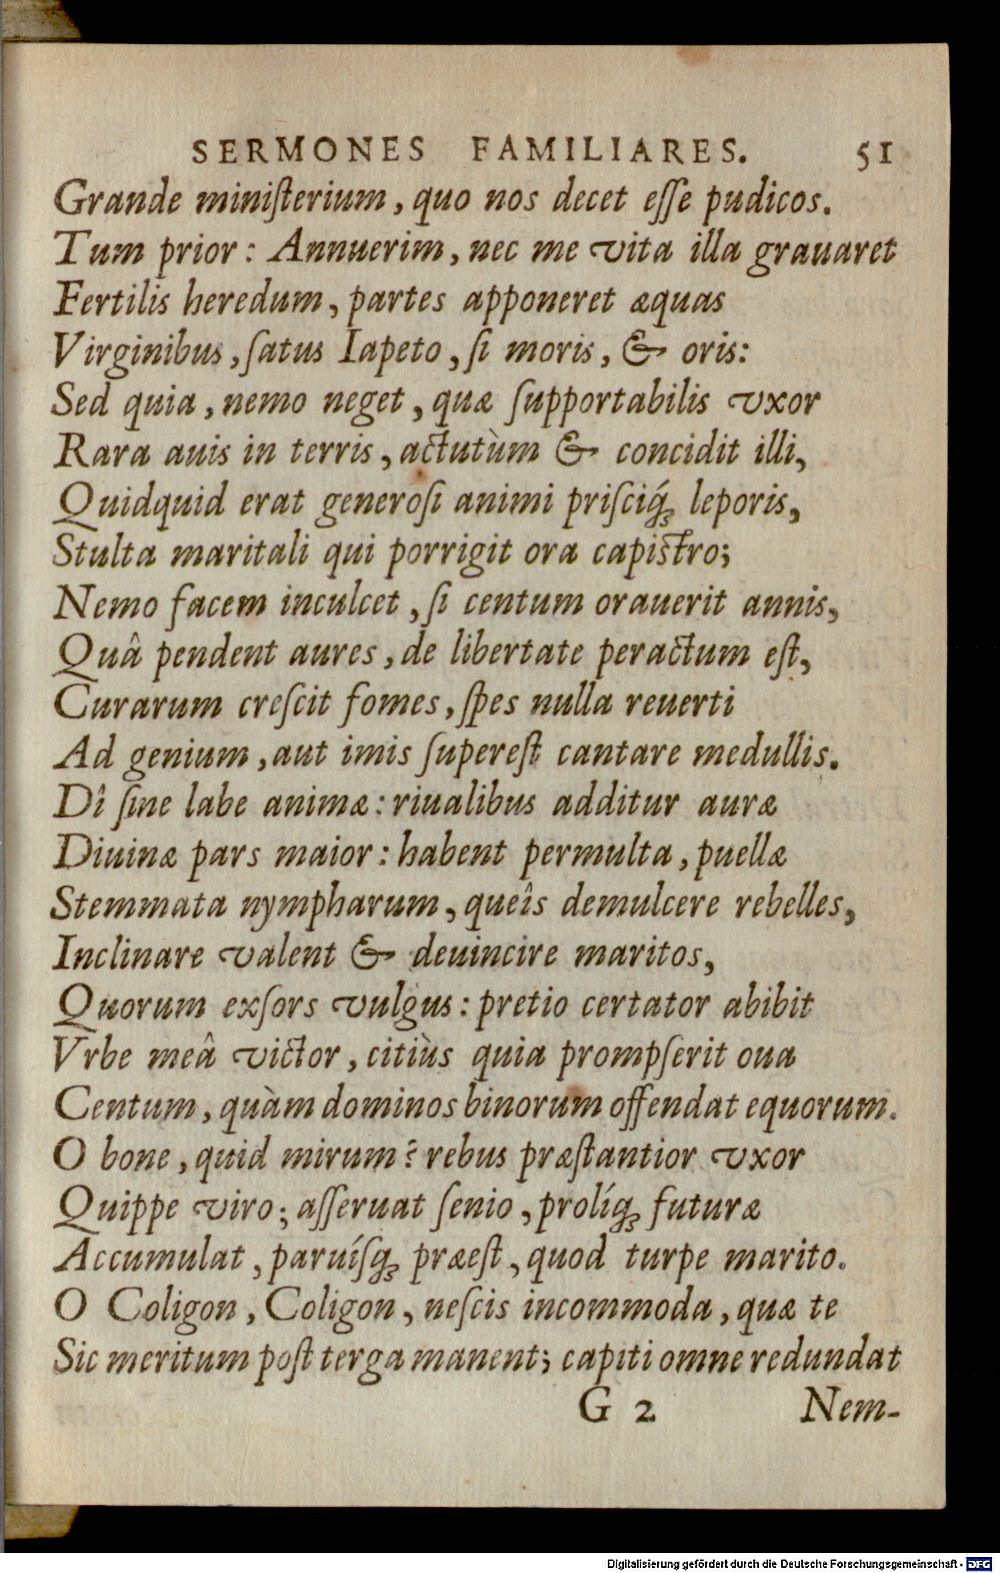 SERMONES FAMILIARES. 51
Grande miniſterium, quo nos decet eſſe pudicos.
Tum prior: Annuerim, nec me vita illa grauaret
Fertilis heredum, partes apponeret æquas
Virginibus, ſatus Iapeto, ſi moris, & oris:
Sed quia, nemo neget, quæ ſupportabilis vxor
Rara auis in terris, actutùm & concidit illi,
Quidquid erat generoſi animi priſciq́ꝫ leporis,
Stulta maritali qui porrigit ora capiſtro;
Nemo facem inculcet, ſi centum orauerit annis,
Quâ pendent aures, de libertate peractum eſt,
Curarum creſcit fomes, ſpes nulla reuerti
Ad genium, aut imis ſupereſt cantare medullis.
Dî ſine labe animæ: riualibus additur auræ
Diuinæ pars maior: habent permulta, puellæ
Stemmata nympharum, queîs demulcere rebelles,
Inclinare valent & deuincire maritos,
Quorum exſors vulgus: pretio certator abibit
Vrbe meâ victor, citiùs quia prompſerit oua
Centum, quàm dominos binorum offendat equorum.
O bone, quid mirum? rebus præſtantior vxor
Quippe viro; aſſeruat ſenio, prolíqꝫ futuræ
Accumulat, paruíſqꝫ præeſt, quod turpe marito.
O Coligon, Coligon, neſcis incommoda, quæ te
Sic meritum poſt terga manent; capiti omne redundat
G 2 Nem-
Digitalisierung gefördert durch die Deutsche Forschungsgemeinschaft - DFG